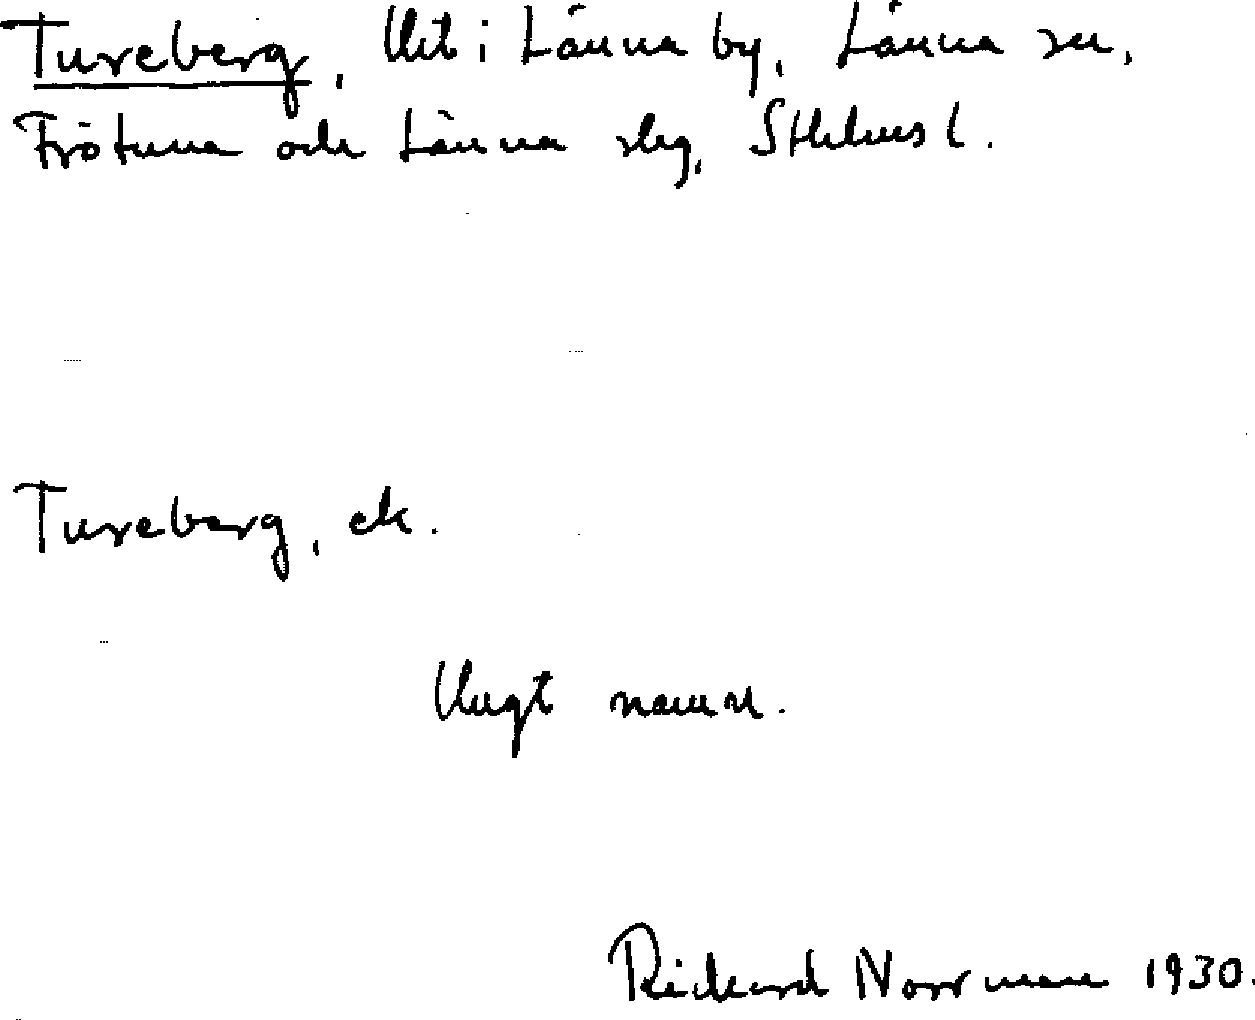 Tureberg, lht i Länna by, Länna sn,
Frötuna och Länna slg, Sthlms l.
Tureberg, ek.
Ungt namn.
Rickard Norrman 1930.